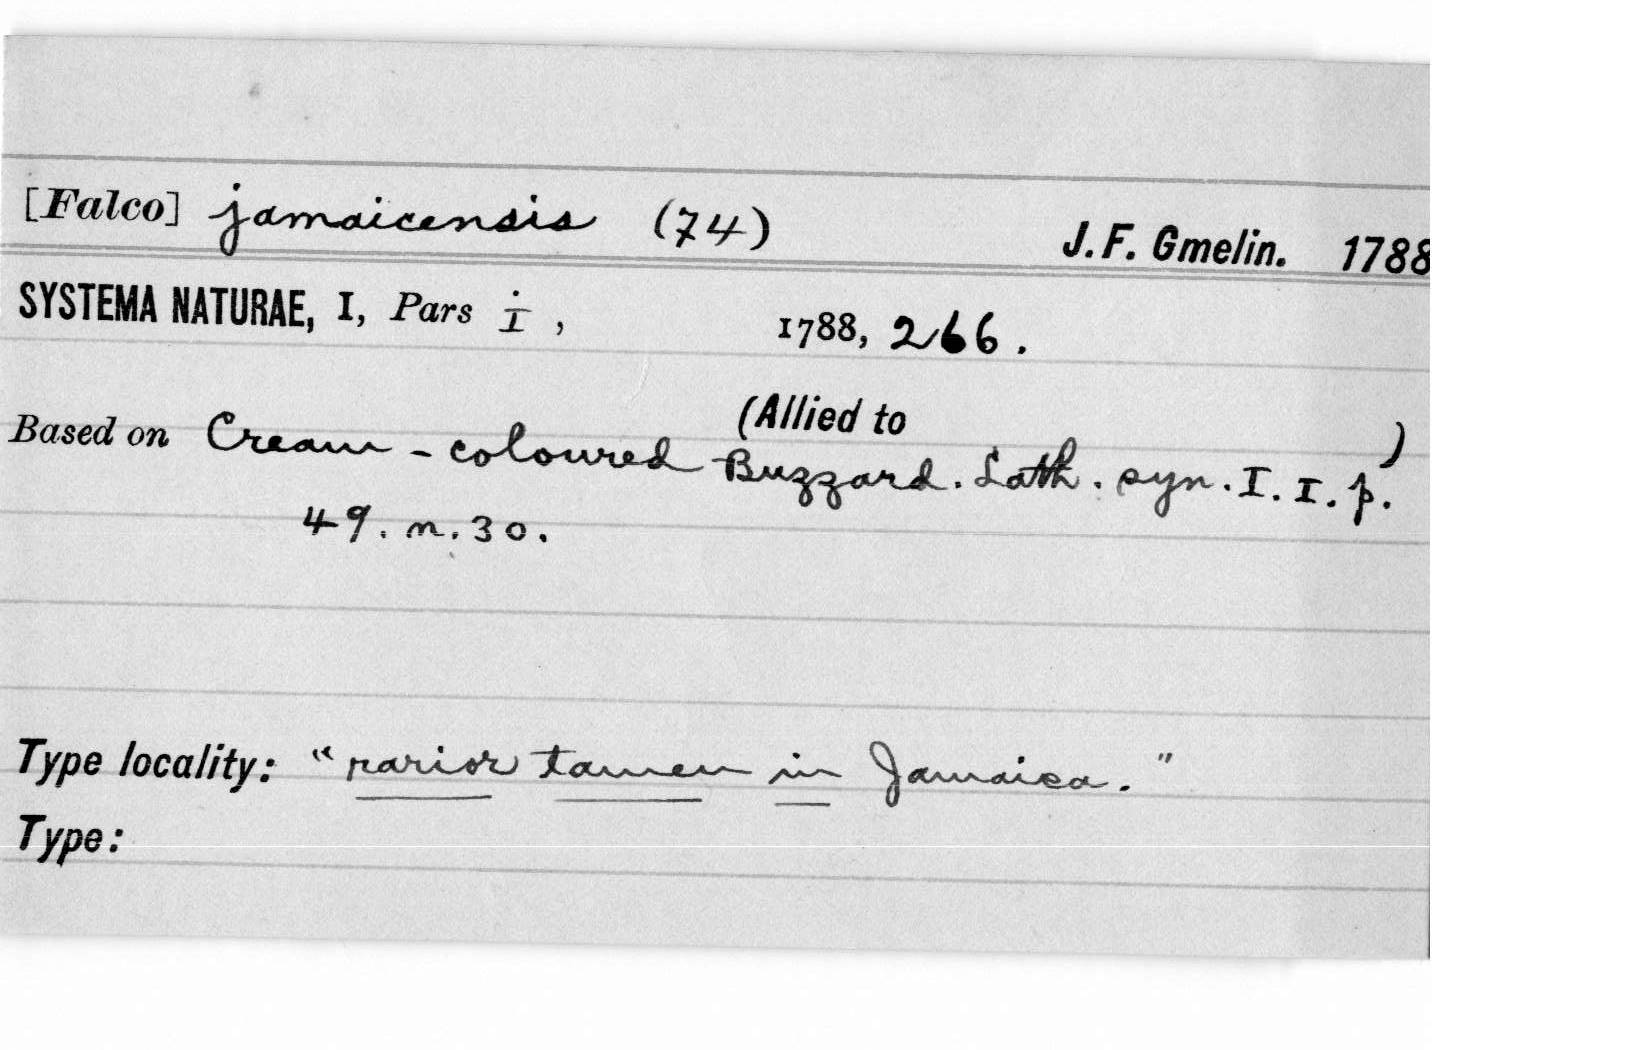 [Falco] jamaicensis (74) J. F. Gmelin. 1788
SYSTEMA NATURAE, I, Pars i, 1788, 266.
(Allied to )
Based on Cream-coloured Buzzard. Lath. syn. I. I. p.
49. n. 30.
Type locality: "rarior tamen in Jamaica."
Type: